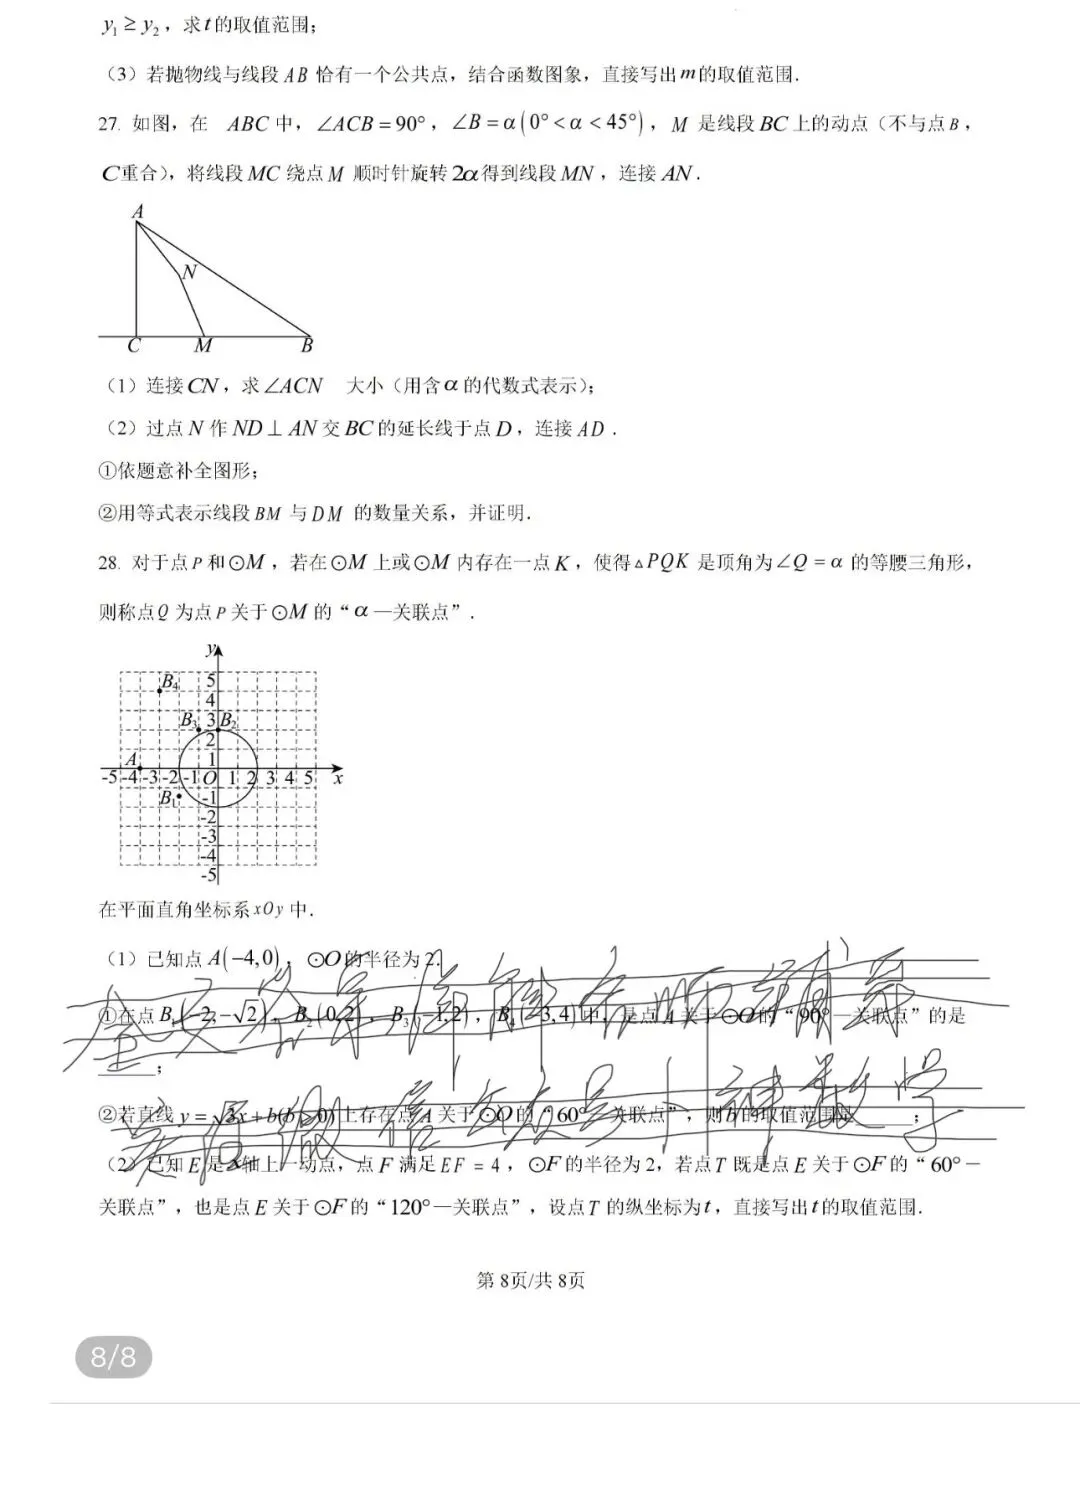 y₁ ≥ y₂，求t的取值范围；
（3）若抛物线与线段AB恰有一个公共点，结合函数图象，直接写出m的取值范围．
27. 如图，在 ABC中，∠ACB = 90°，∠B = α(0° < α < 45°)，M 是线段BC上的动点（不与点B，
C重合），将线段MC绕点M 顺时针旋转2α得到线段MN，连接AN．
A
N
C M B
（1）连接CN，求∠ACN 大小（用含α的代数式表示）；
（2）过点N作ND⊥AN交BC的延长线于点D，连接AD．
①依题意补全图形；
②用等式表示线段BM与DM的数量关系，并证明．
28. 对于点P和⊙M，若在⊙M上或⊙M内存在一点K，使得△PQK是顶角为∠Q = α的等腰三角形，
则称点Q为点P关于⊙M的“α—关联点”．
y
B₄ 5
4
B₃ 3 B₂
2
A 1
-5 -4 -3 -2 -1 O 1 2 3 4 5 x
B₁ -1
-2
-3
-4
-5
在平面直角坐标系xOy中．
（1）已知点A(−4,0)，⊙O的半径为2．
①在点B₁(−2,−√2)，B₂(0,2)，B₃(−1,2)，B₄(−3,4)中，是点A关于⊙O的“90°—关联点”的是
______；
②若直线y = √3x + b(b > 0)上存在点A关于⊙O的“60°—关联点”，则b的取值范围是______；
（2）已知E是x轴上一动点，点F满足EF = 4，⊙F的半径为2，若点T既是点E关于⊙F的“60°—
关联点”，也是点E关于⊙F的“120°—关联点”，设点T的纵坐标为t，直接写出t的取值范围．
第 8页/共 8页
8/8